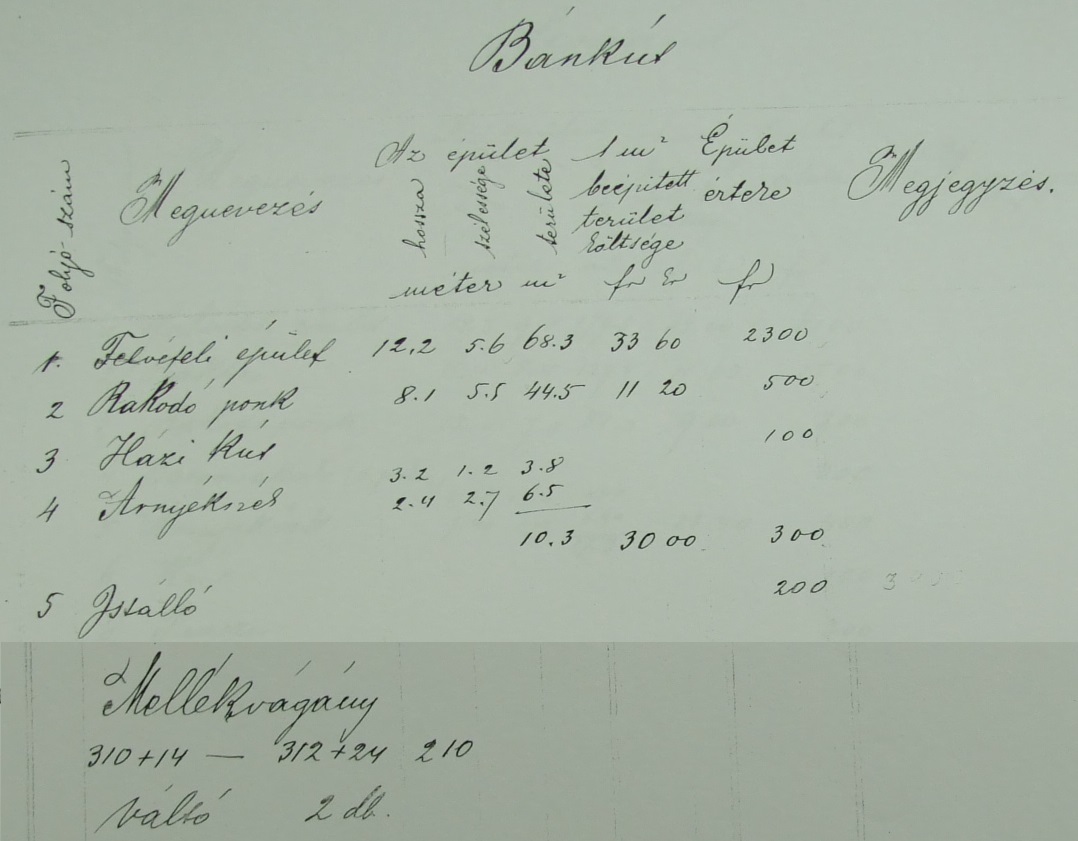 Bánkút
Folyó-szám Megnevezés Az épület 1 m² Épület Megjegyzés.
hossza szélessége területe beépitett értere
terület
költsége
méter m² fr kr fr
1. Felvételi épület 12.2 5.6 68.3 33 60 2300
2 Rakodó ponk 8.1 5.5 44.5 11 20 500
3 Házi kút 100
3.2 1.2 3.8
4 Árnyékszék 2.4 2.7 6.5
10.3 30 00 300
5 Istálló 200
Mellékvágány
310+14 — 312+24 210
Váltó 2 db.